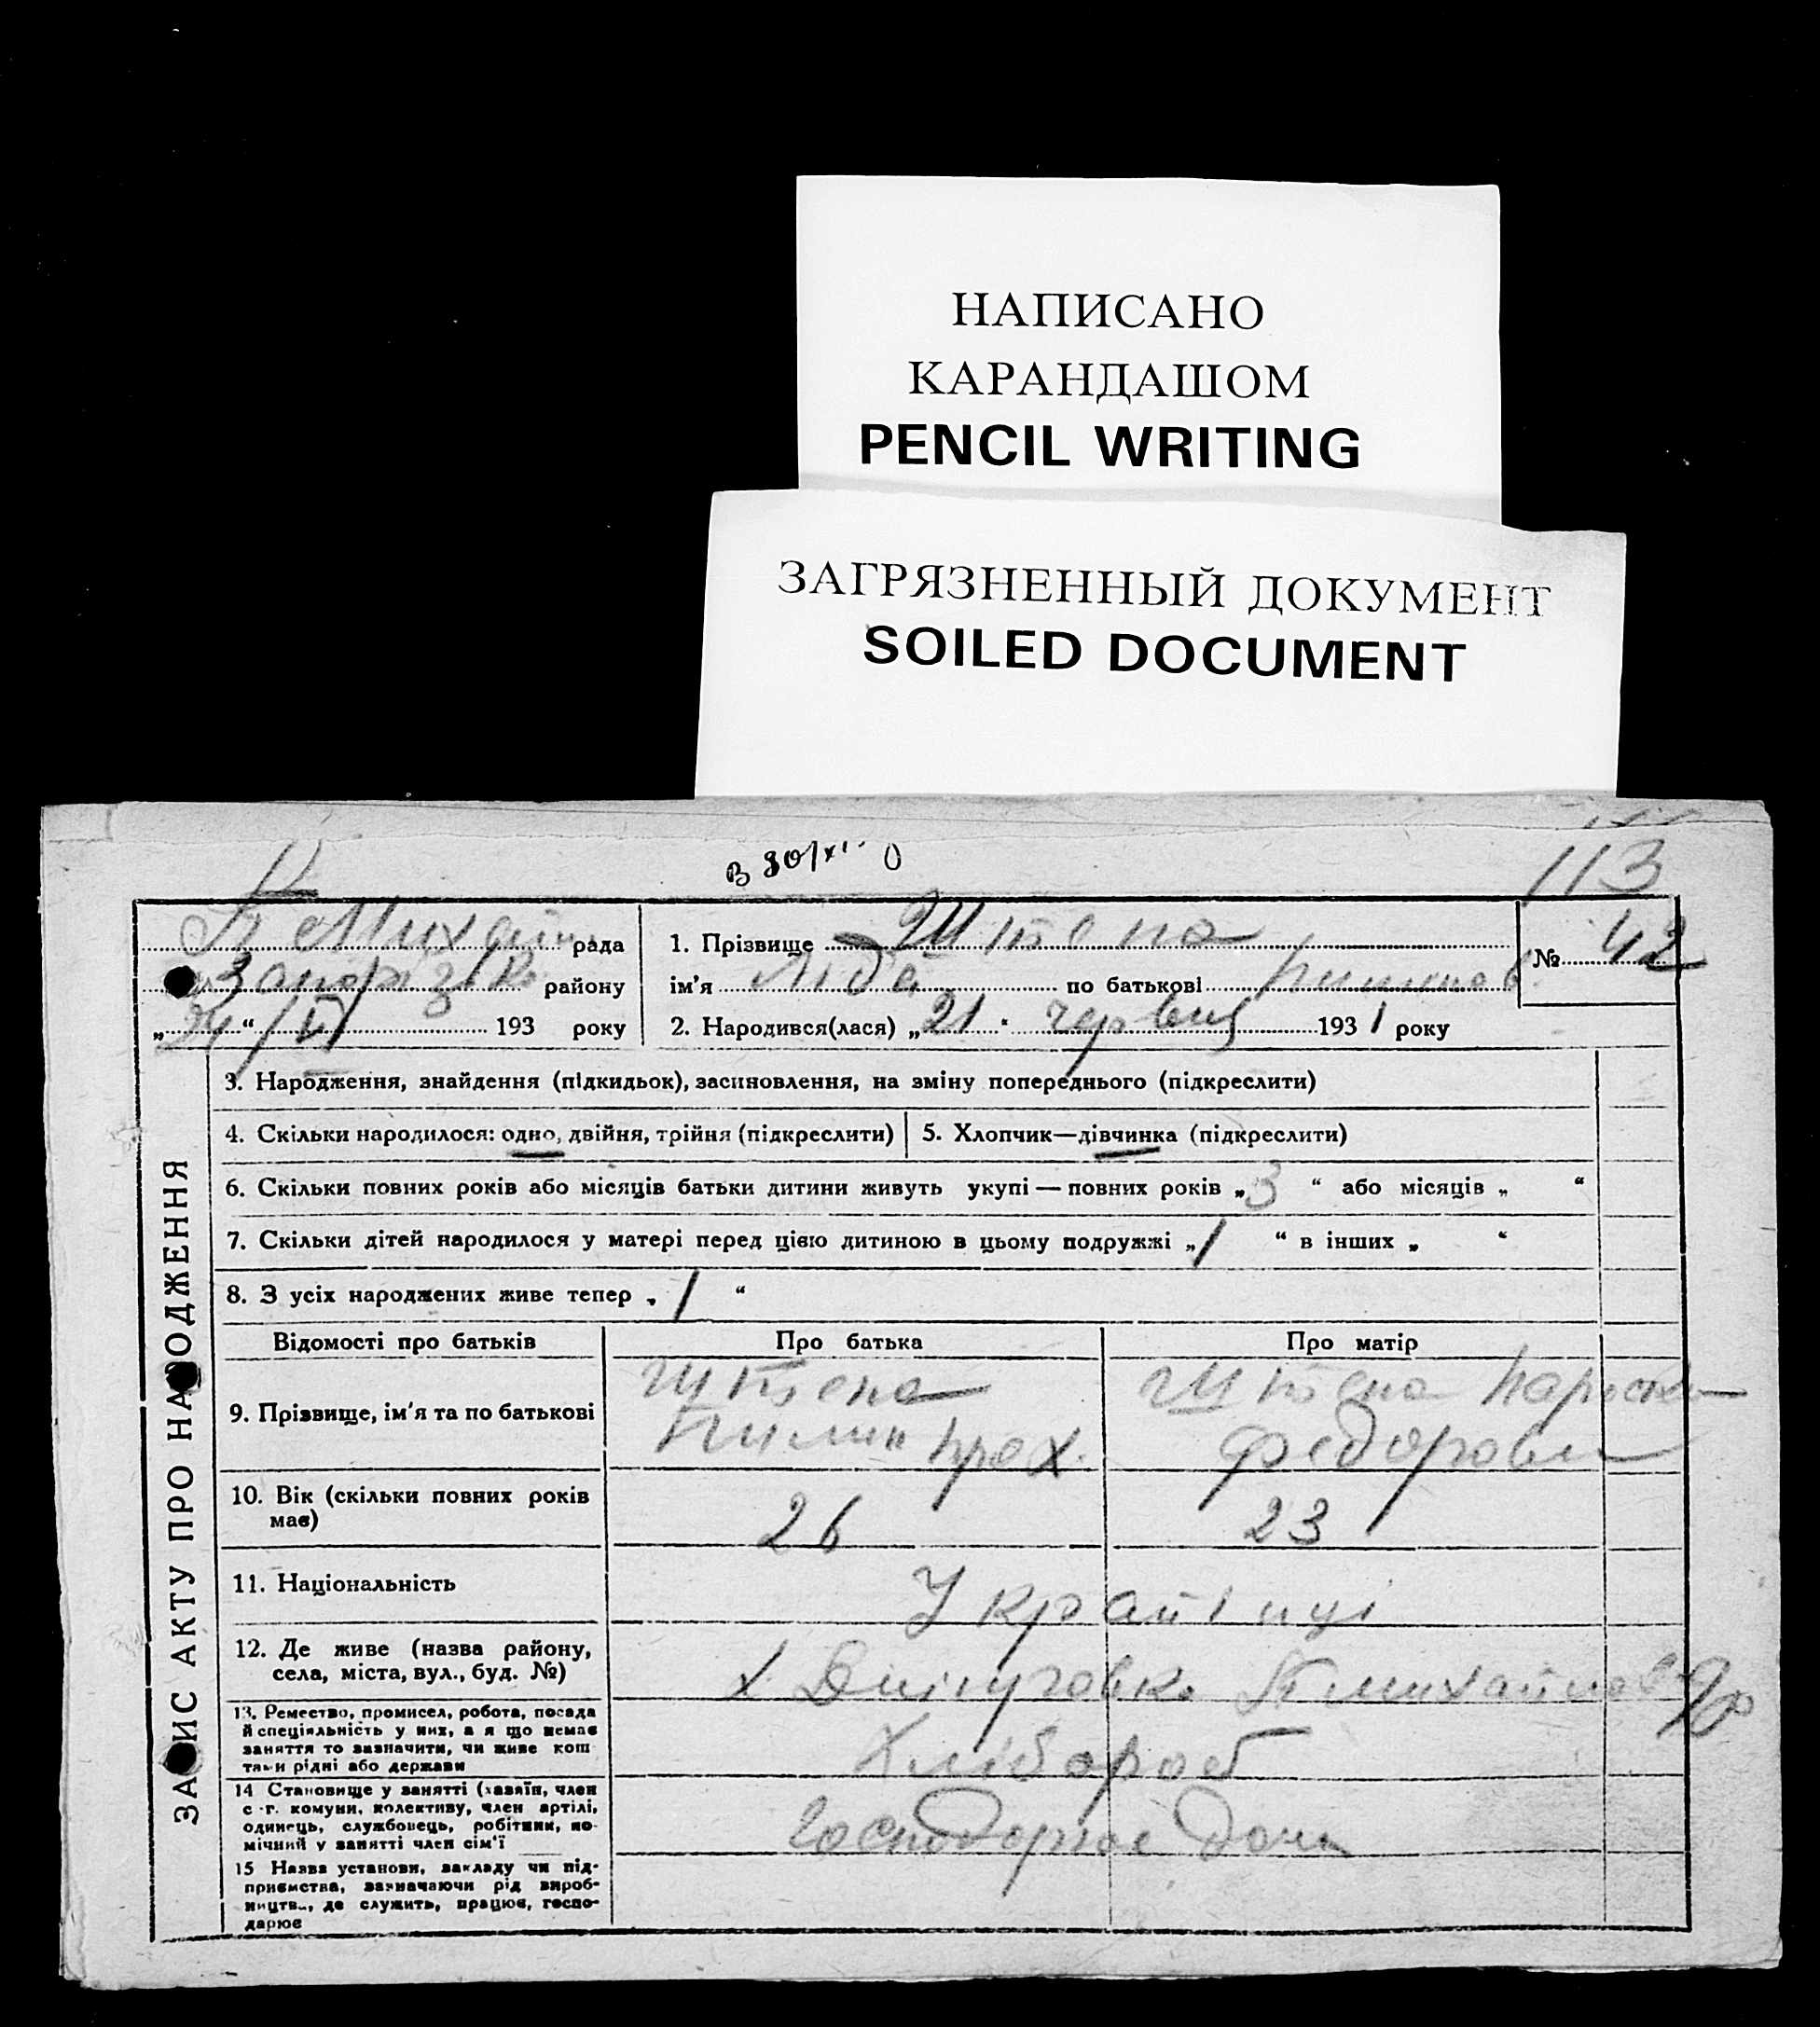 НАПИСАНО
КАРАНДАШОМ
PENCIL WRITING
ЗАГРЯЗНЕННЫЙ ДОКУМЕНТ
SOILED DOCUMENT
113
В 30/XI.
рада
району
„24“ /VI 193 року
1. Прізвище Штепа
ім'я Ліда по батькові Пилипов.
2. Народився(лася) „21“ червця 1931 року
№ 42
ЗАПИС АКТУ ПРО НАРОДЖЕННЯ
3. Народження, знайдення (підкидьок), засиновлення, на зміну попереднього (підкреслити)
4. Скільки народилося: одно, двійня, трійня (підкреслити)
5. Хлопчик—дівчинка (підкреслити)
6. Скільки повних років або місяців батьки дитини живуть укупі — повних років „3“ або місяців „ “
7. Скільки дітей народилося у матері перед цією дитиною в цьому подружжі „1“ в інших „ “
8. З усіх народжених живе тепер „1“
Відомості про батьків Про батька Про матір
9. Прізвище, ім'я та по батькові
Штепа
Пилип Прох.
Штепа
Федоровн
10. Вік (скільки повних років
має)
26 23
11. Національність
Українці
12. Де живе (назва району,
села, міста, вул., буд. №)
х.
13. Ремество, промисел, робота, посада
й спеціяльність у них, а якщо немає
заняття то зазначити, чи живе кош
тами рідні або держави
Хлібороб
14 Становище у занятті (хазяїн, член
с.-г. комуни, колективу, член артілі,
одинець, службовець, робітник, по-
мічний у занятті член сім'ї
15 Назва установи, закладу чи під-
приємства, зазначаючи рід вироб-
ництва, де служить, працює, госпо-
дарює